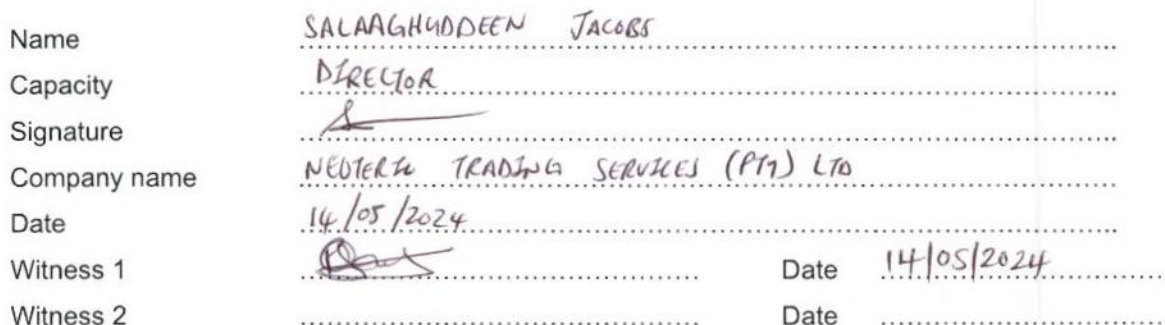 Name SALAAGHUDDEEN JACOBS
Capacity DIRECTOR
Signature
Company name NEOTERIC TRADING SERVICES (PTY) LTD
Date 14/05/2024
Witness 1 Date 14/05/2024
Witness 2 Date